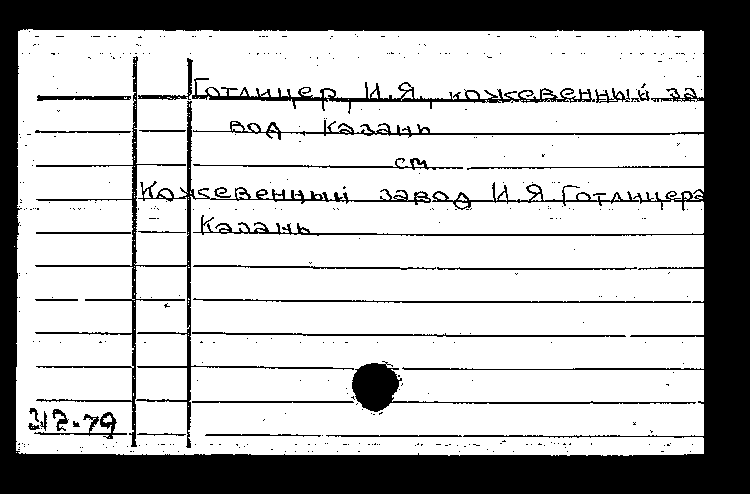 Готлицер, И.Я., кожевенный за
вод. Казань
см.
Кожевенный завод И.Я.Готлицера
Казань.
312-79